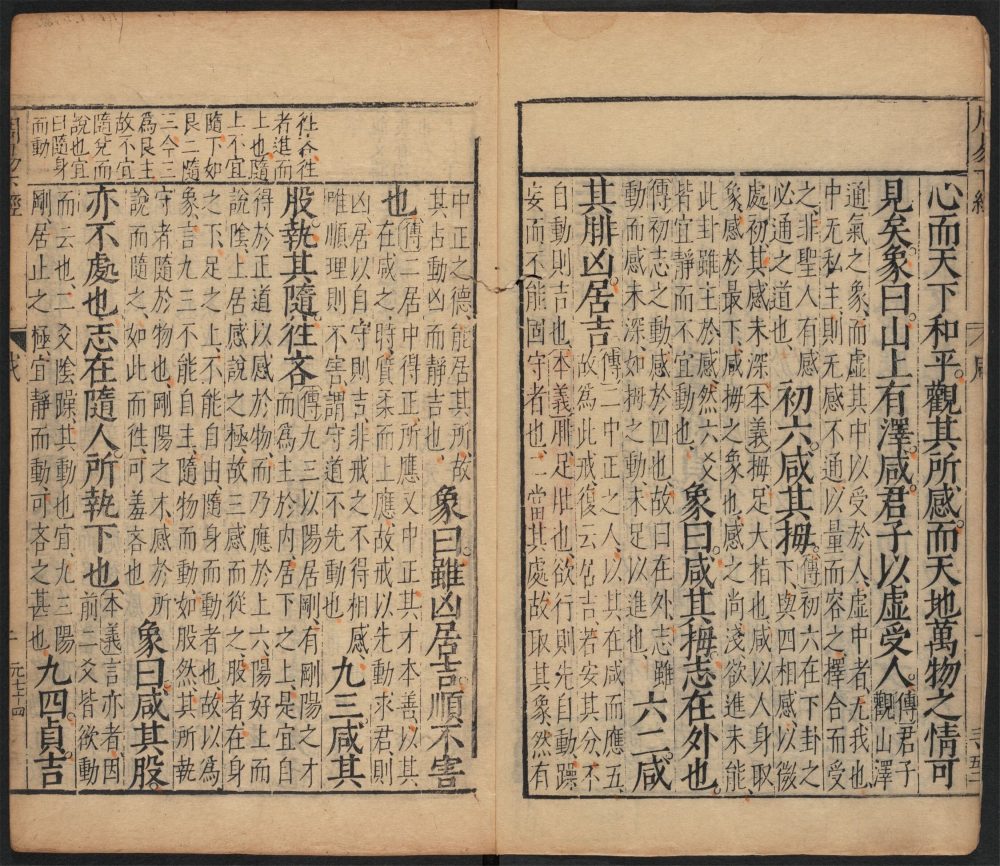 心而天下和平觀其所感而天地萬物之情可
見矣象曰山上有澤咸君子以虛受人
傳君子
觀山澤
通氣之象而虛其中以受於人虛中者无我也
中无私主則无感不通以量而容之擇合而受
之非聖人有感
必通之道也
初六咸其拇
傳初六在下卦之
下與四相感以微
處初其感未深本義拇足大指也咸以人身取
象感於最下咸拇之象也感之尚淺欲進未能
此卦雖主於感然六爻
皆宜靜而不宜動也
象曰咸其拇志在外也
傳初志之動感於四也故曰在外志雖
動而感未深如拇之動未足以進也
六二咸
其腓凶居吉
傳二中正之人以其在咸而應五
故為此戒復云居吉若安其分不
自動則吉也本義腓足肚也欲行則先自動躁
妄而不能固守者也二當其處故取其象然有
中正之德能居其所故
其占動凶而靜吉也
象曰雖凶居吉順不害
也
傳二居中得正所應又中正其才本善以其
在咸之時質柔而上應故戒以先動求君則
凶居以自守則吉非戒之不得相感
唯順理則不害謂守道不先動也
九三咸其
股執其隨往吝
傳九三以陽居剛有剛陽之才
而為主於内居下之上是宜自
得於正道以感於物而乃應於上六陽好上而
說陰上居感說之極故三感而從之股者在身
之下足之上不能自由隨身而動者也故以為
象言九三不能自主隨物而動如股然其所執
守者隨於物也剛陽之才感於所
說而隨之如此而往可羞吝也
象曰咸其股
亦不處也志在隨人所執下也
本義言亦者因
前二爻皆欲動
而云也二爻陰躁其動也宜九三陽
剛居止之極宜靜而動可吝之甚也
九四貞吉
往吝往
者進而
上也隨
上不宜
隨下如
艮二隨
三今三
為艮主
故不宜
隨兌而
說也宜
曰隨身
而動